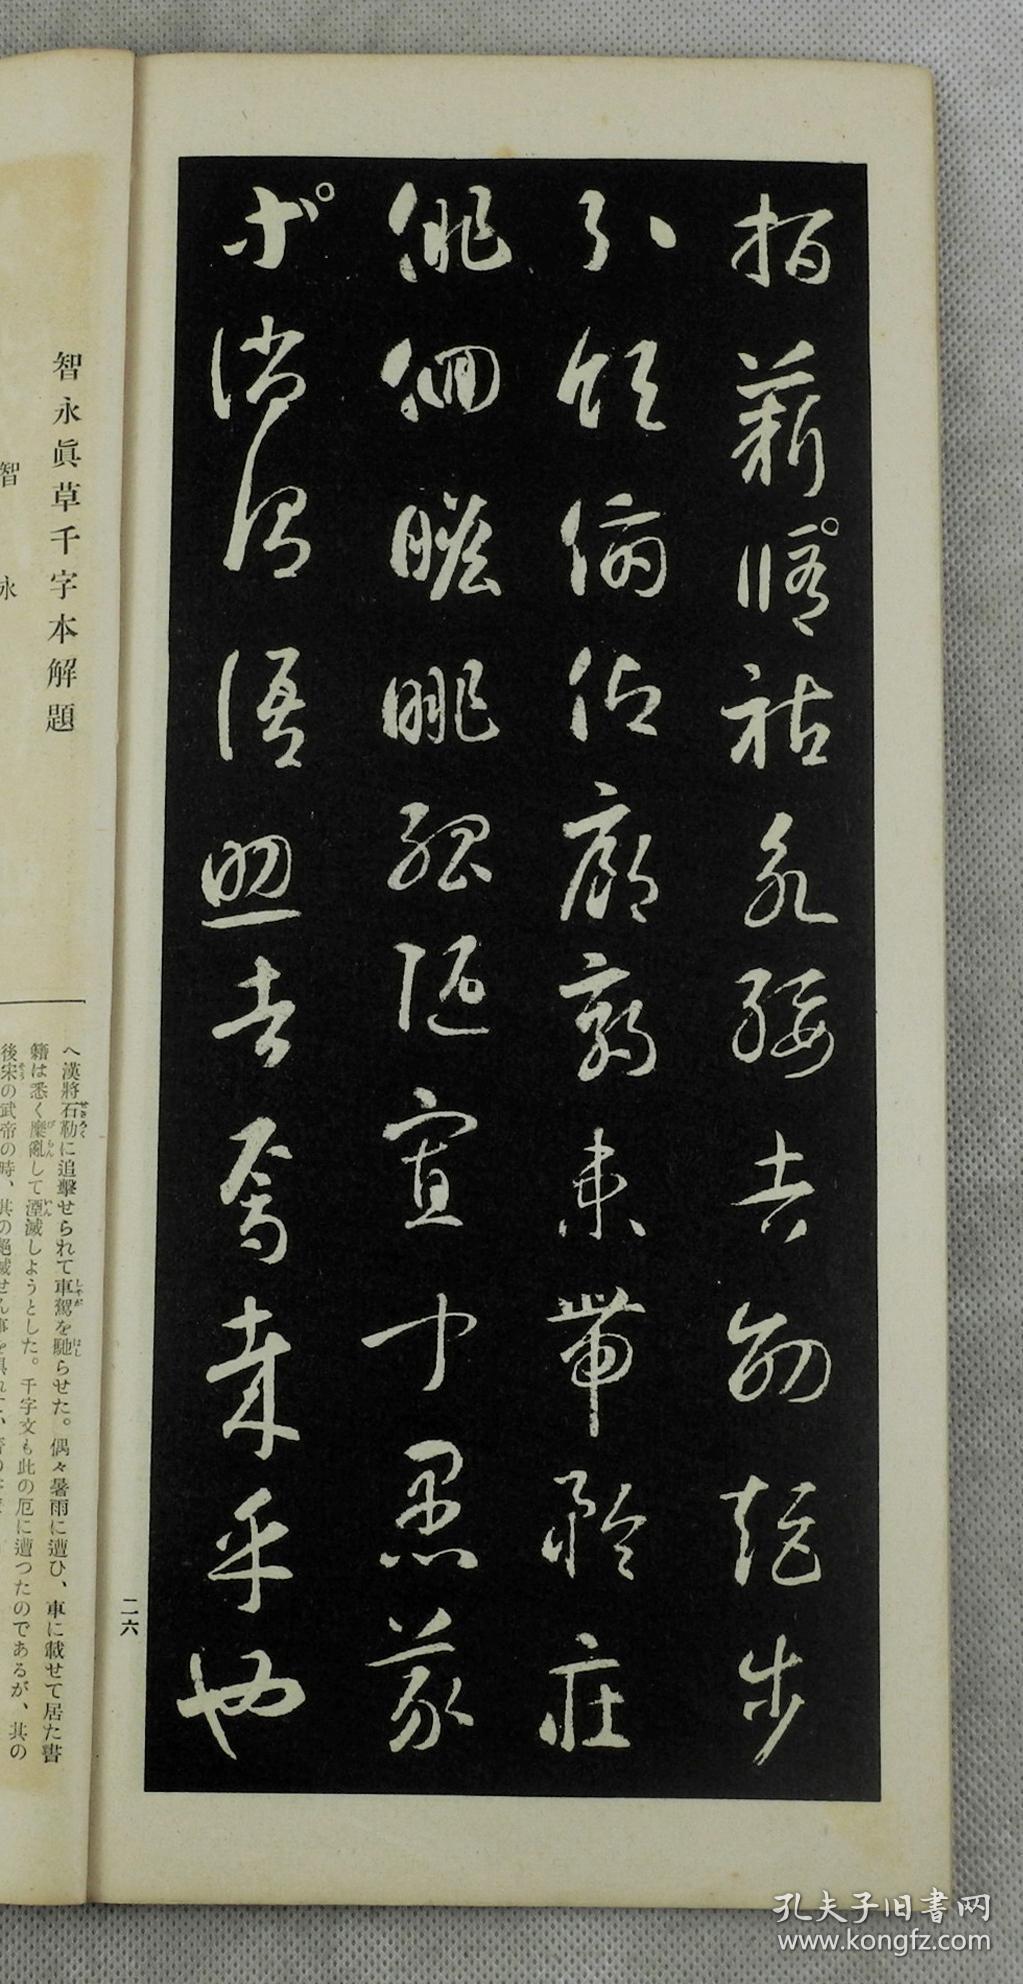 指薪脩祜永綏吉劭矩步
引領俯仰廊廟束帶矜莊
俳佪瞻眺孤陋寡聞愚蒙
等誚謂語助者焉哉乎也
二六
智永眞草千字本解題
智永
へ漢將石勒に追擊せられて車駕を馳らせた。偶々暑雨に遭ひ、車に載せて居た書
籍は悉く糜亂して湮滅しようとした。千字文も此の厄に遭つたのであるが、其の
後宋の武帝の時、其の絕滅せん事を
孔夫子旧书网
www.kongfz.com